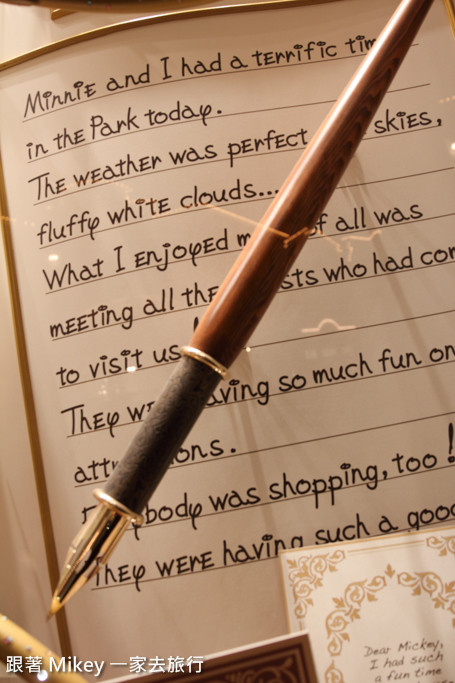 Minnie and I had a terrific tim
in the Park today.
The weather was perfect skies,
fluffy white clouds...
What I enjoyed m of all was
meeting all the sts who had com
to visit us
They we aving so much fun on
att ons.
ybody was shopping, too!
They were having such a good
Dear Mickey,
I had such
a fun time
跟著 Mikey 一家去旅行